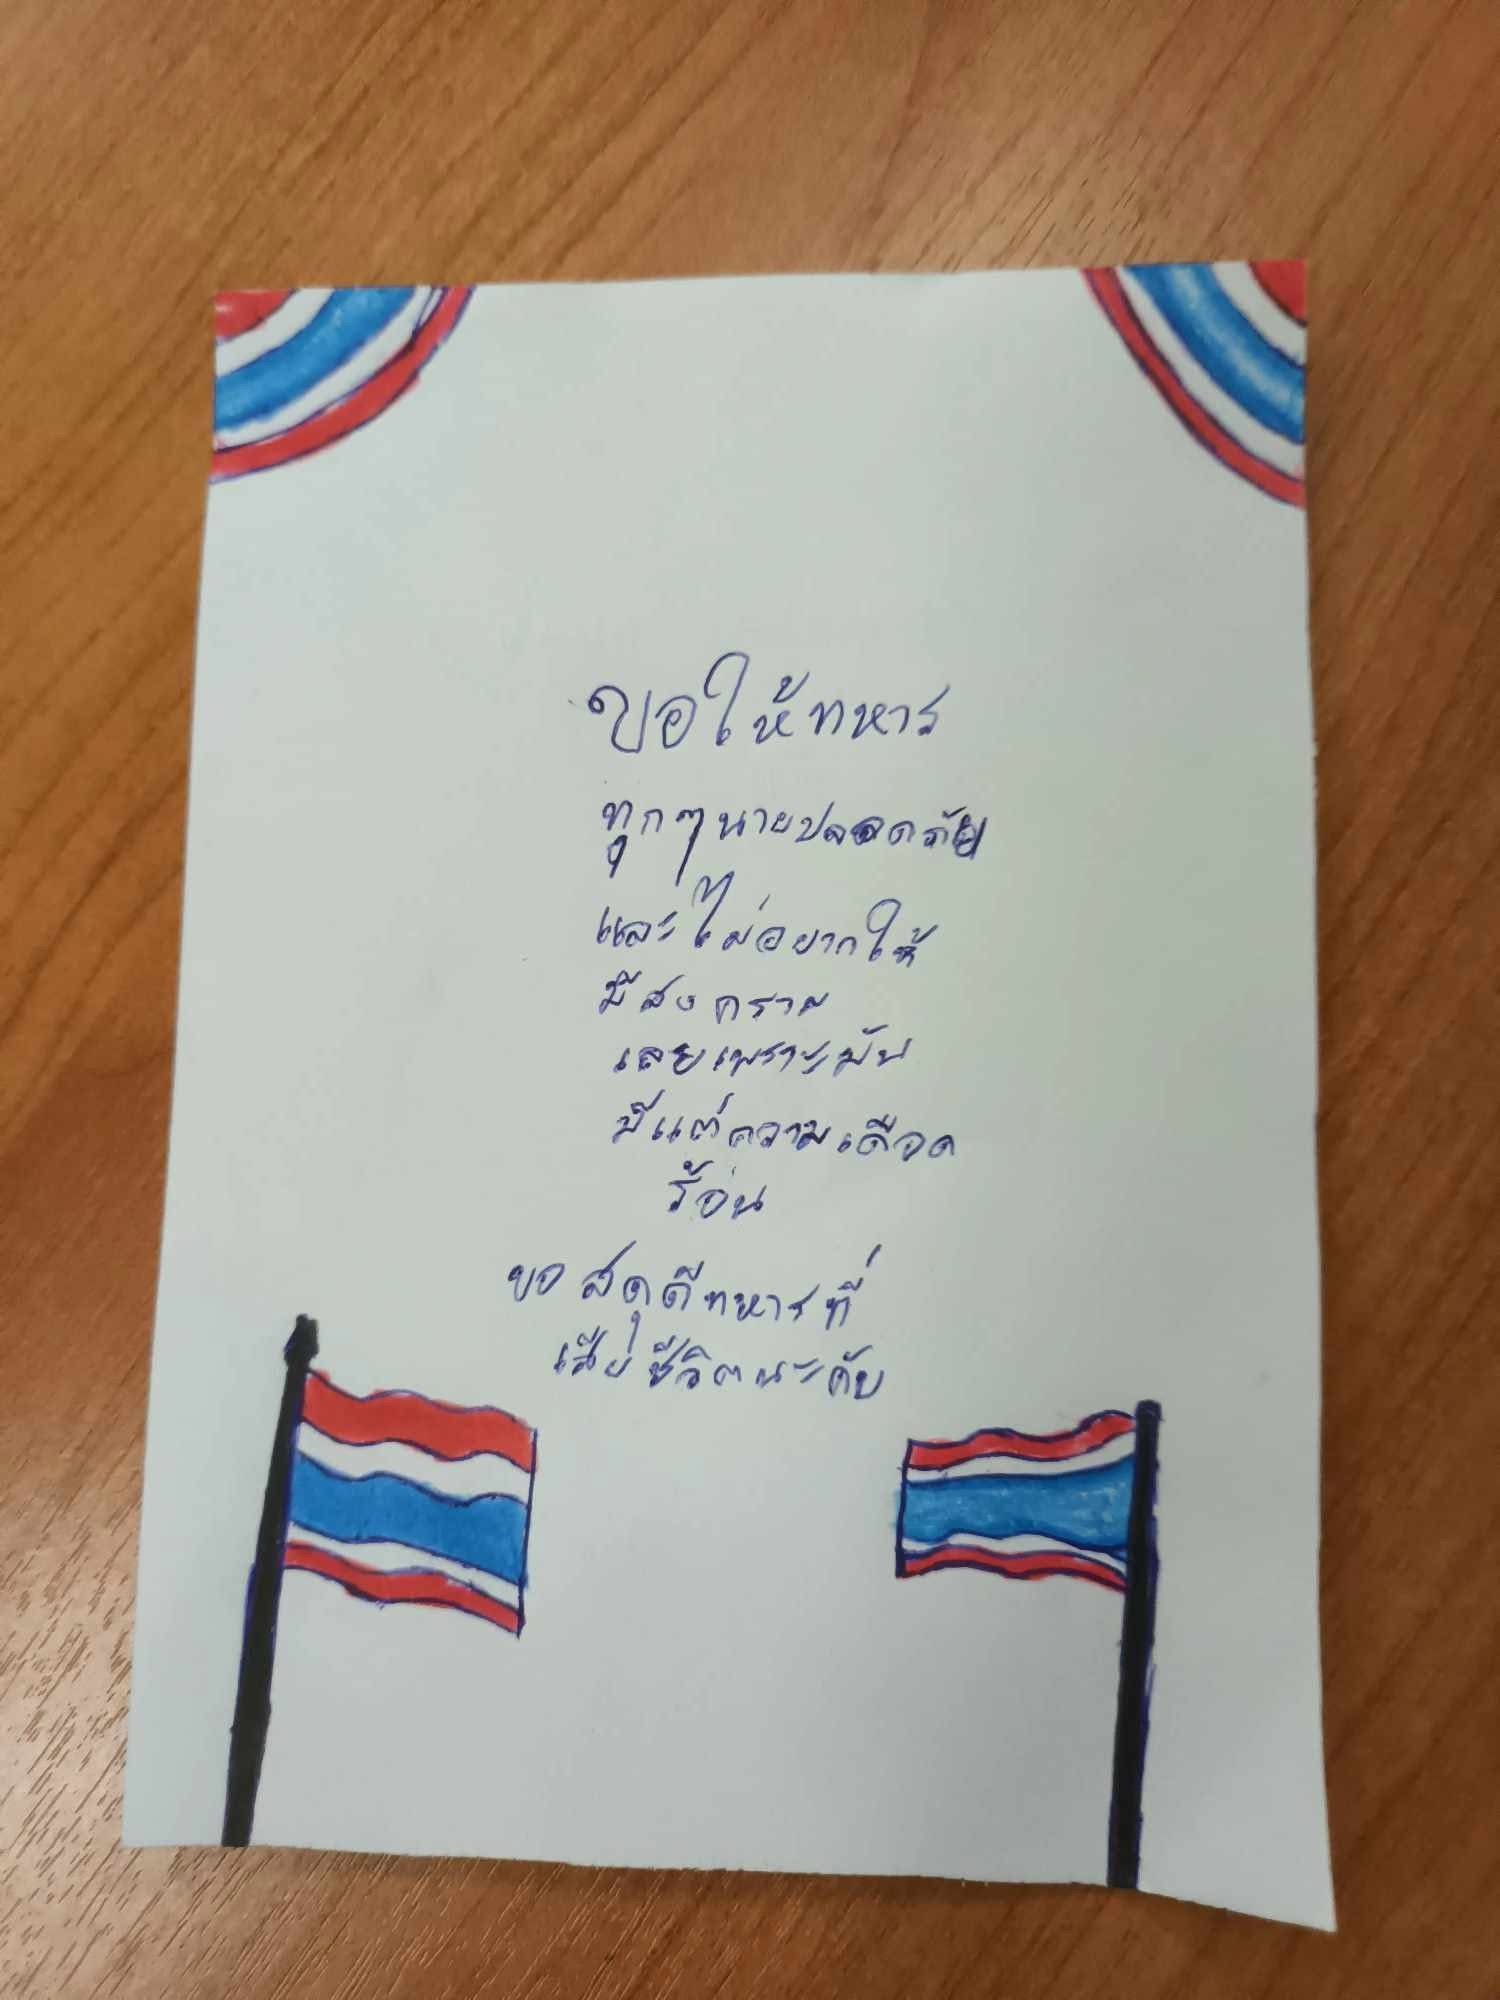 ขอให้ทหาร
ทุกๆนายปลอดภัย
และไม่อยากให้
มีสงคราม
เลยเพราะมัน
มีแต่ความเดือด
ร้อน
ขอสดุดีทหารที่
เสียชีวิตนะคับ